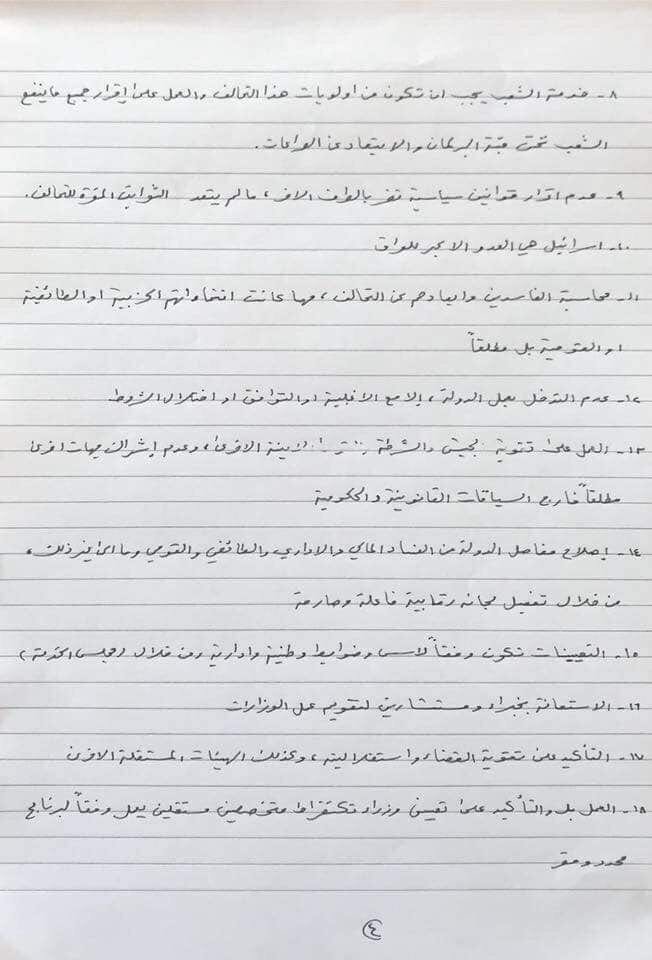 ٨- خدمة الشعب يجب ان تكون من اولويات هذا التحالف والعمل على إقرار جميع ما ينفع
الشعب تحت قبّة البرلمان والابتعاد عن الصراعات.
٩- عدم اقرار قوانين سياسية تضر بالطرف الاخر، ما لم يتعد الثوابت المقرة للتحالف.
١٠- اسرائيل هي العدو الاكبر للعراق
١١- محاسبة الفاسدين وابعادهم عن التحالف، مهما كانت انتماءاتهم الحزبية او الطائفية
او القومية بل مطلقاً
١٢- عدم التدخل بعمل الدولة، إلا مع الاغلبية او التوافق او اختلال الشروط
١٣- العمل على تقوية الجيش والشرطة الامنية الاخرى، وعدم إشراك جهات اخرى
مطلقاً خارج السياقات القانونية والحكومية
١٤- إصلاح مفاصل الدولة من الفساد المالي والاداري والطائفي والقومي وما الى غير ذلك،
من خلال تفعيل لجان رقابية فاعلة وصارمة
١٥- التعيينات تكون وفقاً لاسس وضوابط وطنية وادارية ومن خلال (مجلس الخدمة)
١٦- الاستعانة بخبراء ومستشارين لتقويم عمل الوزارات
١٧- التأكيد على تقوية القضاء واستقلاليته، وكذلك الهيئات المستقلة الاخرى
١٨- العمل بل والتأكيد على تعيين وزراء تكنقراط متخصصين مستقلين يعمل وفقاً لبرنامج
محدد ومقر
٤